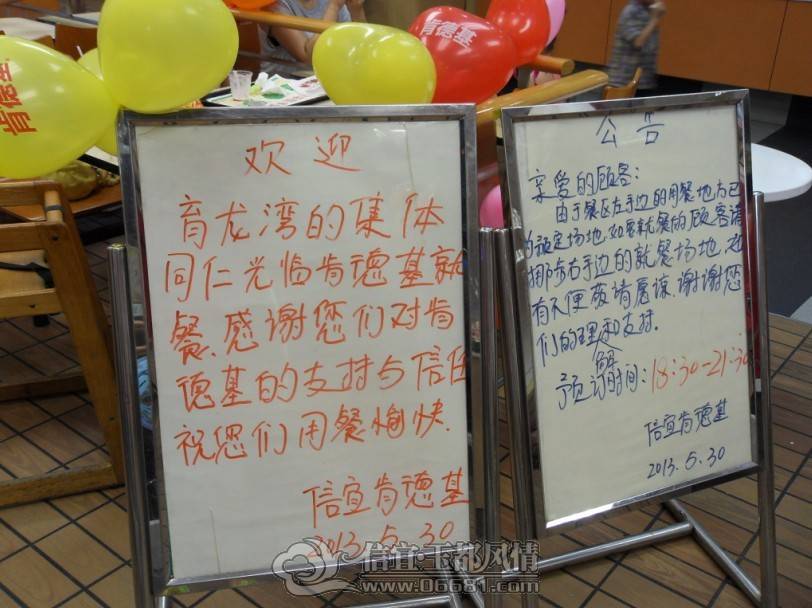 肯德基
肯德基
欢迎
育龙湾的集体
同仁光临肯德基就
餐.感谢您们对肯
德基的支持与信任
祝您们用餐愉快.
信宜肯德基
2013.5.30
公告
亲爱的顾客:
由于餐区左手边的用餐地方已
被定场地.如要就餐的顾客请
挪步右手边的就餐场地.
有不便敬请原谅.谢谢您
们的理解和支持.
预订时间:18:30-21:30
信宜肯德基
2013.5.30
信宜玉都风情
www.06681.com